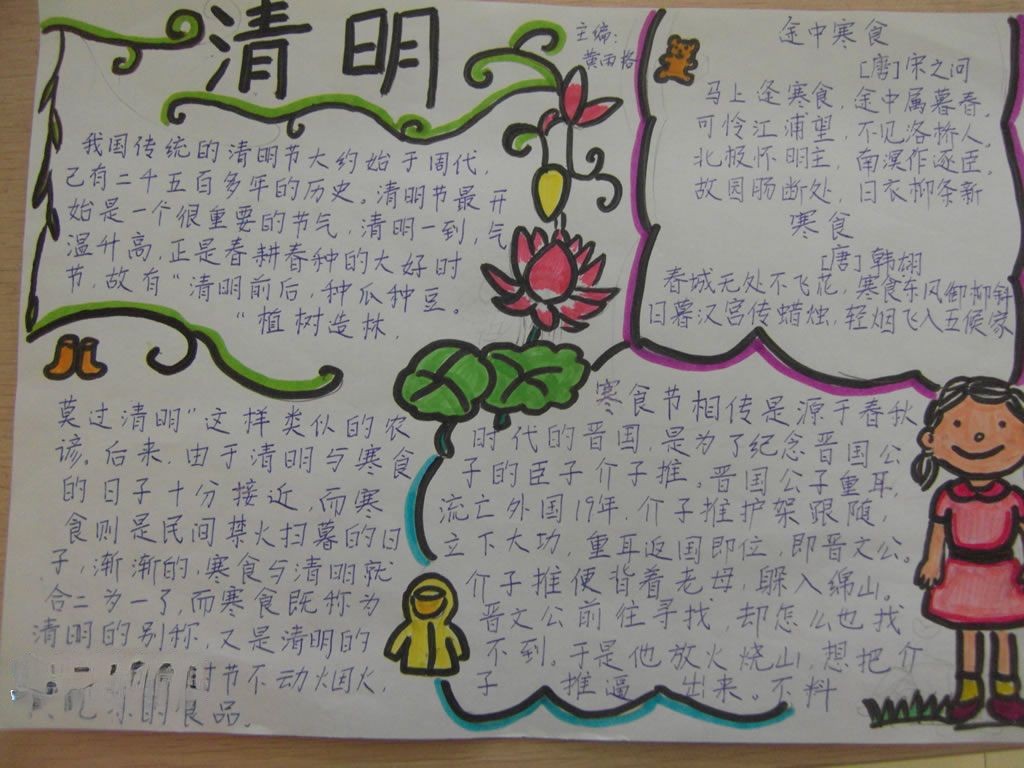 清明
主编:
黄雨格
我国传统的清明节大约始于周代,
已有二千五百多年的历史。清明节最开
始是一个很重要的节气,清明一到,气
温升高,正是春耕春种的大好时
节,故有“清明前后,种瓜种豆。
“植树造林,
莫过清明”这样类似的农
谚。后来,由于清明与寒食
的日子十分接近,而寒
食则是民间禁火扫墓的日
子,渐渐的,寒食与清明就
合二为一了,而寒食既称为
清明的别称,又是清明的
时节不动烟火,
凉的食品。
途中寒食
[唐]宋之问
马上逢寒食,途中属暮春。
可怜江浦望,不见洛桥人。
北极怀明主,南溟作逐臣。
故园肠断处,日衣柳条新
寒食
[唐]韩翃
春城无处不飞花,寒食东风御柳斜
日暮汉宫传蜡烛,轻烟飞入五候家
寒食节相传是源于春秋
时代的晋国,是为了纪念晋国公
子的臣子介子推。晋国公子重耳,
流亡外国19年,介子推护架跟随,
立下大功,重耳返国即位,即晋文公。
介子推便背着老母,躲入绵山。
晋文公前往寻找,却怎么也找
不到。于是他放火烧山,想把介
子推逼出来。不料